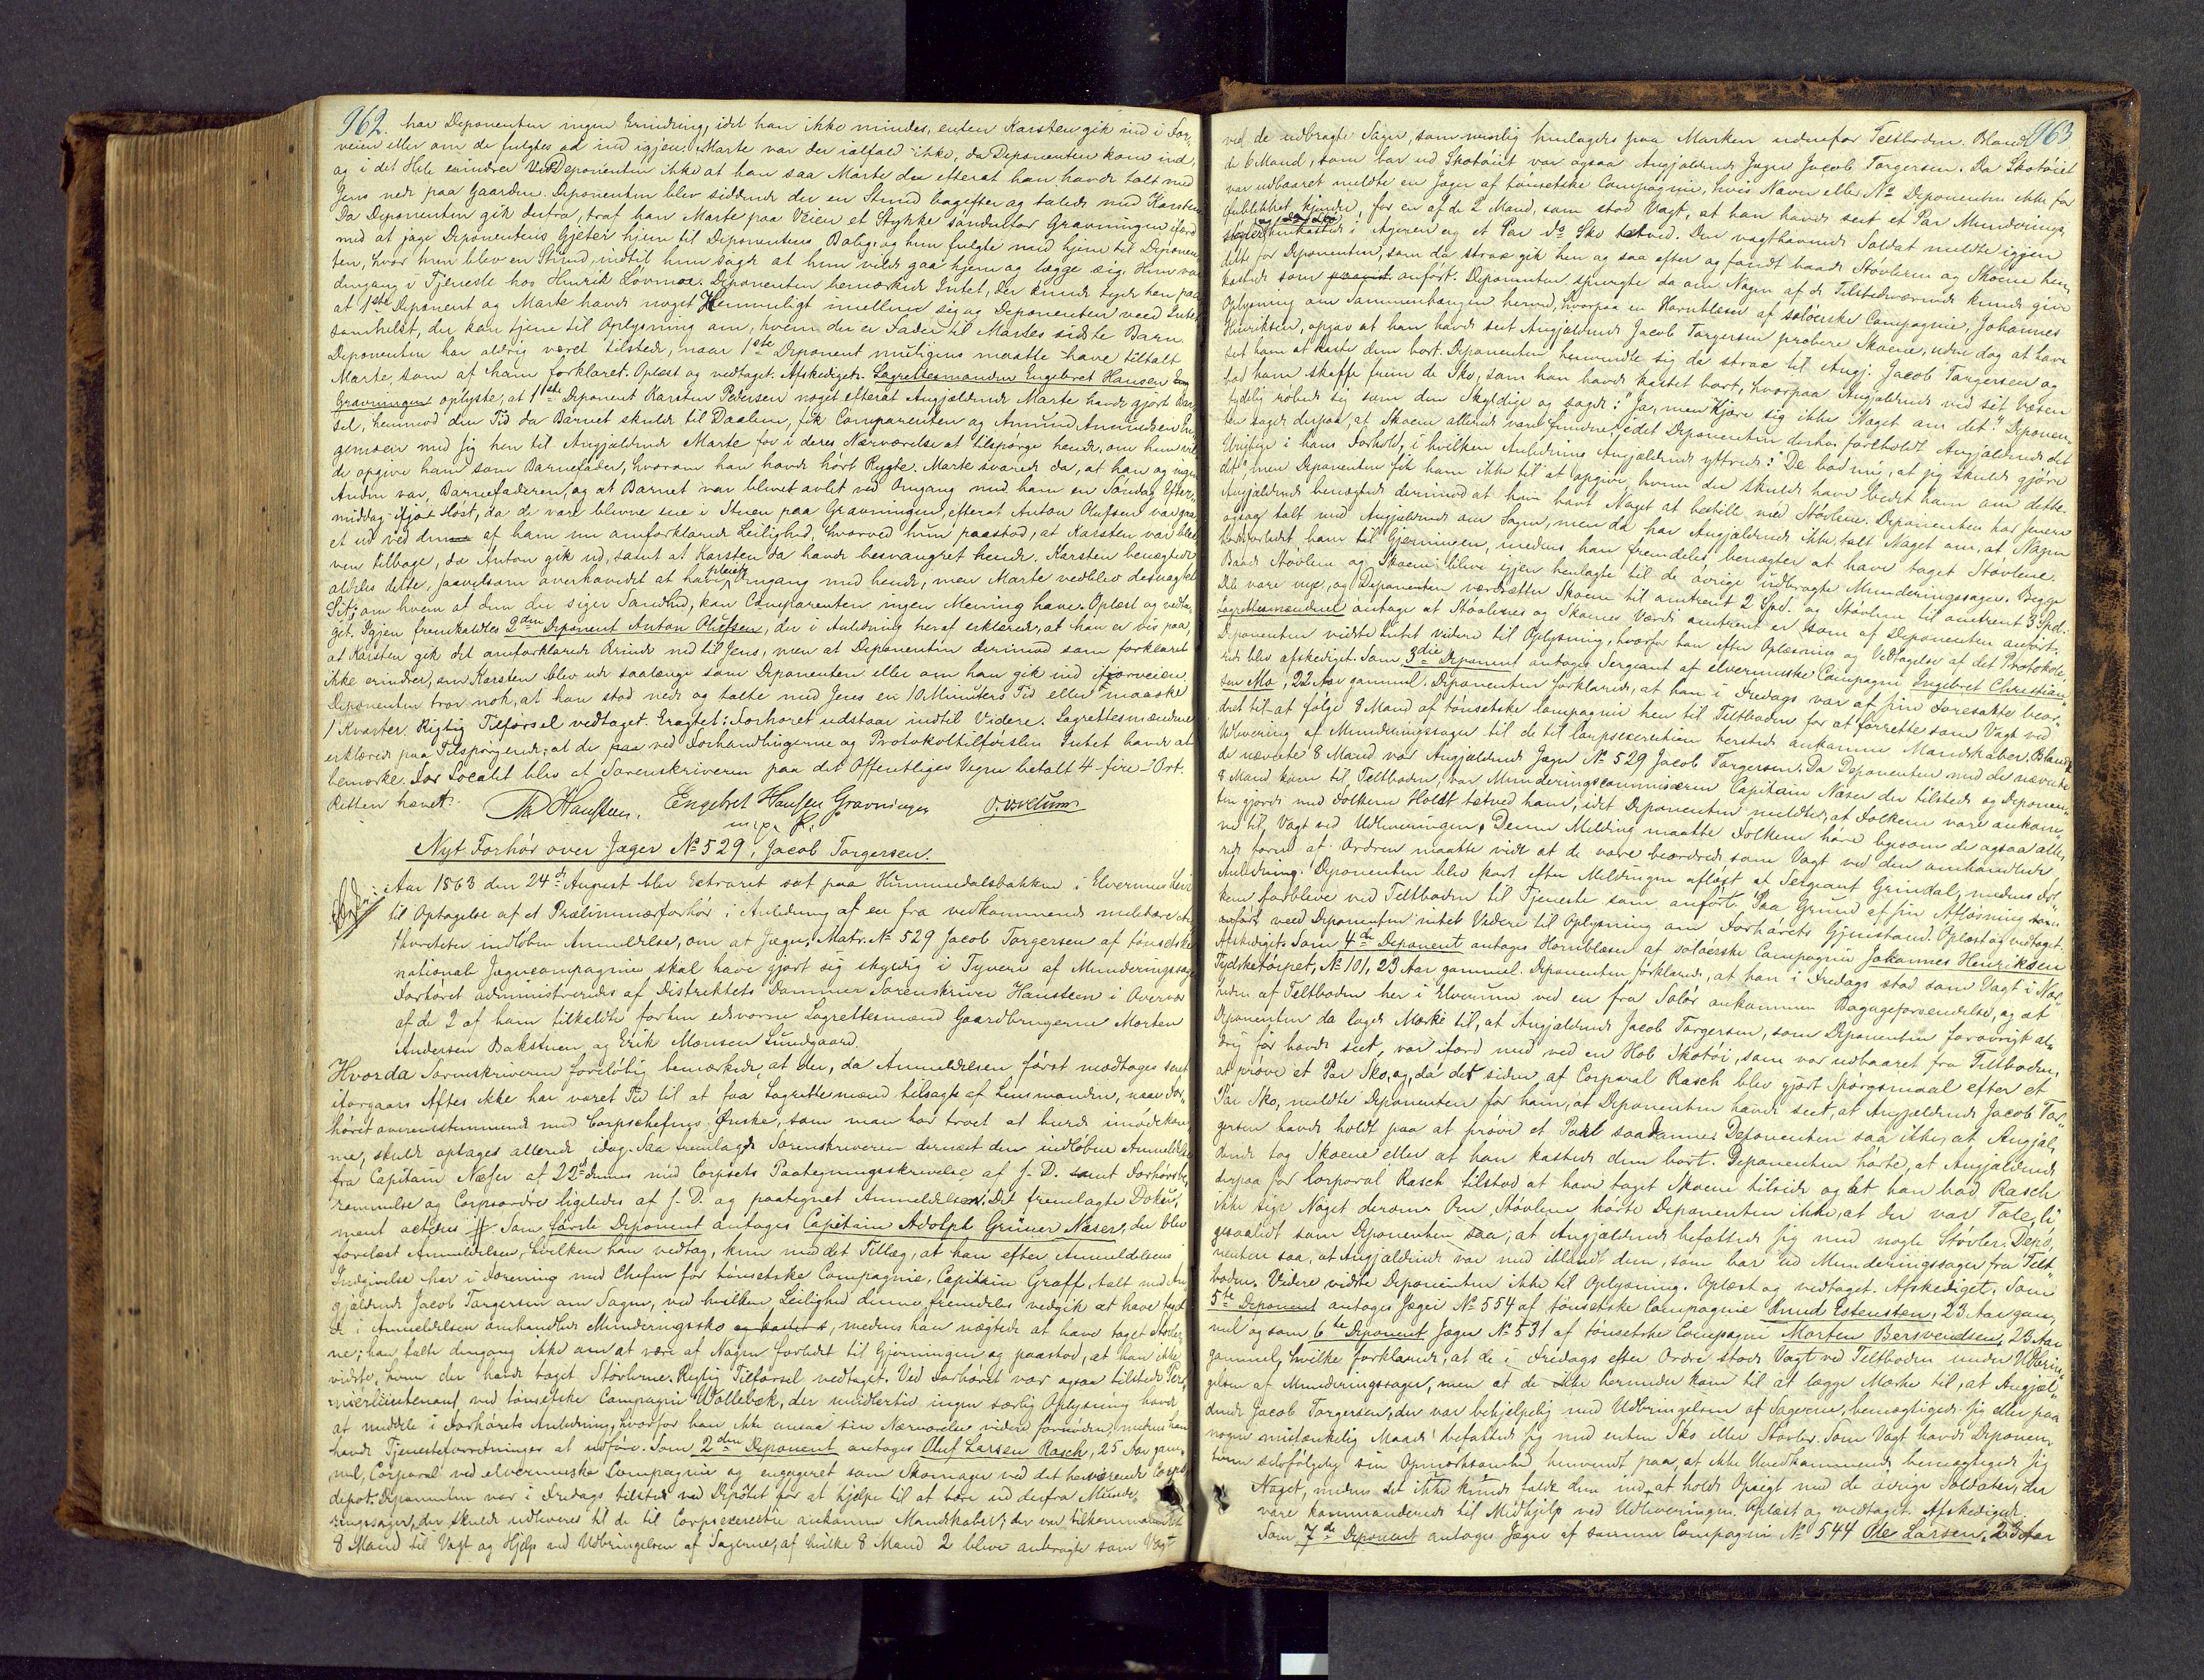 962.
har Deponenten ingen Erindring, idet han ikke mindes, enten Karsten gik ind i For-
veien eller om de fulgtes ad ind igjen. Marte var der ialfald ikke, da Deponenten kom ind,
og i det Hele erindrer Deponenten ikke at han saa Marte der efterat han havde talt med
Jens nede paa Gaarden. Deponenten blev siddende der en Stund bagefter og talede med Karsten.
Da Deponenten gik derfra, traf han Marte paa Veien et Stykke søndenfor Gravningen ifærd
med at jage Deponentens Gjeter hjem til Deponentens Bolig, og hun fulgte med hjem til Deponen-
ten, hvor hun blev en Stund, indtil hun sagde at hun vilde gaa hjem og lægge sig. Hun var
dengang i Tjeneste hos Henrik Løvmoe. Deponenten bemærkede Intet, der kunde tyde hen paa
at 1ste Deponent og Marte havde noget Hemmeligt imellem sig og Deponenten veed Intet
somhelst, der kan tjene til Oplysning om, hvem der er Fader til Martes sidste Barn.
Deponenten har aldrig været tilstede, naar 1ste Deponent muligens maatte have tiltalt
Marte, som af ham forklaret. Oplæst og vedtaget. Afskediget. Lagrettesmanden Engebret Hansen
Gravningen oplyste, at 1ste Deponent Karsten Pedersen noget efterat Angjældende Marte havde gjort Bar-
sel, henimod den Tid da Barnet skulde til Daaben, fik Comparenten og Amund Amundsen
gemoen med sig hen til Angjældende Marte for i deres Nærværelse at tilspørge hende, om hun vil-
de opgive ham som Barnefader, hvorom han havde hørt Rygte. Marte svarede da, at han og ingen
Anden var Barnefaderen, og at Barnet var blevet avlet ved Omgang med ham en Søndag Efter-
middag ifjor Høst, da de vare blevne ene i Stuen paa Gravningen, efterat Anton Olufsen var gaa-
et ud ved den af ham nu omforklarede Leilighed, hvorved hun paastod, at Karsten var ble-
ven tilbage, da Anton gik ud, samt at Karsten da havde besvangret hende. Karsten benægtede
aldeles dette, saavelsom overhovedet at have pleiet Omgang med hende, men Marte vedblev desuagtet
Sit; om hvem af dem der siger Sandhed, kan Comparenten ingen Mening have. Oplæst og vedta-
get. Igjen fremkaldtes 2den Deponent Anton Olufsen, der i Anledning heraf erklærede, at han er vis paa,
at Karsten gik det omforklarede Ærinde ned til Jens, men at Deponenten derimod som forklaret
ikke erindrer, om Karsten blev ude saalænge som Deponenten eller om han gik ind iforveien.
Deponenten tror nok, at han stod nede og talte med Jens en 10 Minuters Tid eller maaske
1 Kvarter. Rigtig Tilførsel vedtaget. Eragtet: Forhøret udstaar indtil Videre. Lagrettesmændene
erklærede paa Tilspørgende, at de ved Forhandlingerne og Protokoltilførslen Intet havde at
bemærke. For Localet blev af Sorenskriveren paa det Offentliges Vegne betalt 4 - fire - Ort.
Retten hævet.
Th Hansteen. Engebret Hansen Gravningen
m. p. P.
Nyt Forhør over Jæger No 529, Jacob Torgersen.
Aar 1863 den 24de August blev Extraret sat paa Hummeldalsbakken i Elverums Leir
til Optagelse af et Præliminærforhør i Anledning af en fra vedkommende militære Au-
thoriteter indløben Anmeldelse, om at Jæger, Matr. No 529 Jacob Torgersen af tønsetske
nationale Jægercompagnie skal have gjort sig skyldig i Tyveri af Munderingssager.
Forhøret administreredes af Distriktets Dommer Sorenskriver Hansteen i Overvær
af de 2 af ham tilkaldte forhen edsvorne Lagrettesmænd Gaardbrugerne Morten
Andersen Baksteen og Erik Monsen Lundgaard.
Hvorda Sorenskriveren foreløbig bemærkede, at der, da Anmeldelsen først modtoges sent
iforgaars Aftes ikke har været Tid til at faa Lagrettesmænd tilsagte af Lensmanden, naar For-
høret overensstemmende med Corpschefens Ønske, som man har troet at burde imødekom-
me, skulde optages allerede idag. Saa fremlagde Sorenskriveren dernæst den indløbne Anmeldelse
fra Capitain Næser af 22de dennes med Corpsets Paategningsskrivelse af s. D. samt Forhørsbe-
rammelse og Corpsordre ligeledes af s. D. og paategnet Anmeldelsen. Det fremlagte Doku-
ment acteres # Som første Deponent antoges Capitain Adolph Grüner Næser, der blev
forelæst Anmeldelsen, hvilken han vedtog, kun med det Tillæg, at han efter Anmeldelsens
Indgivelse har i Forening med Chefen for tønsetske Compagnie, Capitain Graff, talt med An-
gjældende Jacob Torgersen om Sagen, ved hvilken Leilighed denne fremdeles vedgik at have taget
de i Anmeldelsen omhandlede Munderingssko, medens han nægtede at have taget Støvler-
ne; han talte dengang ikke om at være af Nogen forledet til Gjerningen og paastod, at han ikke
vidste, hvem der havde taget Støvlerne. Rigtig Tilførsel vedtaget. Ved Forhøret var ogsaa tilstede Pre-
mierlieutenant ved tønsetske Compagnie Wollebæk, der imidlertid ingen særlig Oplysning havde
at meddele i Forhørets Anledning, hvorfor han ikke ansaa sin Nærværelse videre fornøden, medens han
havde Tjenesteforretninger at udføre. Som 2den Deponent antoges Oluf Larsen Rasch, 25 Aar gam-
mel, Corporal ved elverumske Compagnie og engageret som Skomager ved det herværende Corps-
depot. Deponenten var i Fredags tilstede ved Depotet for at hjelpe til at bære ud derfra Munde-
ringssager, der skulde udleveres til de til Corpsexersitie ankomne Mandskaber; der var tilkommanderet
8 Mand til Vagt og Hjelp ved Udbringelsen af Sagerne, af hvilke 8 Mand 2 bleve anbragte som Vagt
963
ved de udbragte Sager, som nemlig henlagdes paa Marken udenfor Teltboden. Blandt
de 6 Mand, som bar ud Skotøiet var ogsaa Angjældende Jæger Jacob Torgersen. Da Skotøiet
var udbaaret meldte en Jæger af tønsetske Compagnie, hvis Navn eller No Deponenten ikke for
Øieblikket kjender, for en af de 2 Mand, som stod Vagt, at han havde seet et Par Munderings-
støvler henkastede i Ageren og et Par do Sko tætved. Den vagthavende Soldat meldte igjen
dette for Deponenten, som da strax gik hen og saa efter og fandt baade Støvlerne og Skoene hen-
kastede som anført. Deponenten spurgte da om Nogen af de Tilstedeværende kunde give
Oplysning om Sammenhængen herved, hvorpaa en Hornblæser af solørske Compagnie, Johannes
Henriksen, opgav at han havde seet Angjældende Jacob Torgersen probere Skoene, uden dog at have
seet ham at kaste dem bort. Deponenten henvendte sig da strax til Angj. Jacob Torgersen og
bad ham skaffe frem de Sko, som han havde kastet bort, hvorpaa Angjældende ved sit Væsen
tydelig røbede sig som den Skyldige og sagde: "Ja, men kjære sig ikke Noget om det". Deponen-
ten sagde derpaa, at Skoene allerede vare fundne, idet Deponenten derhos foreholdt Angjældende det
Urigtige i hans Forhold, i hvilken Anledning Angjældende yttrede: "De bad mig, at jeg skulde gjøre
det" men Deponenten fik ham ikke til at opgive, hvem der skulde have bedet ham om dette.
Angjældende benægtede derimod at have havt Noget at bestille med Støvlene. Deponenten har senere
ogsaa talt med Angjældende om Sagen, men da har Angjældende ikke talt Noget om, at Nogen
havde forledet ham til Gjerningen, medens han fremdeles benægter at have taget Støvlene.
Baade Støvlene og Skoene bleve igjen henlagte til de øvrige udbragte Munderingssager. Begge
Dele vare nye, og Deponenten værdsætter Skoene til omtrent 2 Spd. og Støvlene til omtrent 3 Spd.
Lagrettesmændene antage at Støvlernes og Skoenes Værdi omtrent er som af Deponenten anført.
Deponenten vidste Intet videre til Oplysning, hvorfor han efter Oplæsning og Vedtagelse af det Protokolle-
rede blev afskediget. Som 3die Deponent antoges Sergeant af elverumske Compagni Ingebret Christian-
sen Mo, 22 Aar gammel. Deponenten forklarede, at han i Fredags var af sin Foresatte beor-
dret til at følge 8 Mand af tønsetske Compagnie hen til Teltboden for at forrette som Vagt ved
Udlevering af Munderingssager til de til Corpsexersition hersteds ankomne Mandskaber. Blandt
de nævnte 8 Mand var Angjældende Jæger No 529 Jacob Torgersen. Da Deponenten med de nævnte
8 Mand kom til Teltboden, var Munderingscommissæren Capitain Næser der tilstede og Deponen-
ten gjorde med Folkene Holdt tætved ham, idet Deponenten meldte, at Folkene vare ankom-
ne til Vagt ved Udleveringen. Denne Melding maatte Folkene høre ligesom de ogsaa alle-
rede forud af Ordren maatte vide at de vare beordrede som Vagt ved den omhandlede
Anledning. Deponenten blev kort efter Meldingen afløst af Sergeant Grindal, medens Fol-
kene forbleve ved Teltboden til Tjeneste som anført. Paa Grund af sin Afløsning som
anført veed Deponenten intet Videre til Oplysning om Forhørets Gjenstand. Oplæst og vedtaget.
Afskediget. Som 4de Deponent antoges Hornblæser af solørske Compagnie Johannes Henriksen
Tydsketørpet, No 101, 23 Aar gammel. Deponenten forklarede, at han i Fredags stod som Vagt i Nær-
heden af Teltboden her i Elverum ved en fra Solør ankommen Bagageforsendelse, og at
Deponenten da lagde Mærke til, at Angjældende Jacob Torgersen, som Deponenten forøvrigt al-
drig før havde seet, var ifærd med ved en Hob Skotøi, som var udbaaret fra Teltboden,
at prøve et Par Sko, og, da det siden af Corporal Rasch blev gjort Spørgsmaal efter et
Par Sko, meldte Deponenten for ham, at Deponenten havde seet, at Angjældende Jacob Tor-
gersen havde holdt paa at prøve et Par saadanne. Deponenten saa ikke, at Angjæl-
dende tog Skoene eller at han kastede dem bort. Deponenten hørte, at Angjældende
derpaa for Corporal Rasch tilstod at have taget Skoene tilside og at han bad Rasch
ikke sige Noget derom. Om Støvlene hørte Deponenten ikke, at der var Tale, li-
gesaalidt som Deponenten saa, at Angjældende befattede sig med nogle Støvler. Depo-
nenten saa, at Angjældende var med iblandt dem, som bar ud Munderingssager fra Telt-
boden. Videre vidste Deponenten ikke til Oplysning. Oplæst og vedtaget. Afskediget. Som
5te Deponent antoges Jæger No 554 af tønsetske Compagnie Knud Estensten, 23 Aar gam-
mel og som 6te Deponent Jæger No 531 af tønsetske Compagni Morten Bersvendsen, 23 Aar
gammel, hvilke forklarede, at de i Fredags efter Ordre stode Vagt ved Teltboden under Udbrin-
gelsen af Munderingssager, men at de ikke herunder kom til at lægge Mærke til, at Angjæl-
dende Jacob Torgersen, der var behjelpelig med Udbringelsen af Sagerne, bemægtigede sig eller paa
nogen mistænkelig Maade befattede sig med enten Sko eller Støvler. Som Vagt havde Deponen-
terne selvfølgelig sin Opmærksomhed henvendt paa, at ikke Uvedkommende bemægtigede sig
Noget, medens det ikke kunde falde dem ind at holde Opsigt med de øvrige Soldater, der
vare kommanderede til Medhjelp ved Udleveringen. Oplæst og vedtaget. Afskedigede.
Som 7de Deponent antoges Jæger af samme Compagni No 544 Ole Larsen, 23 Aar